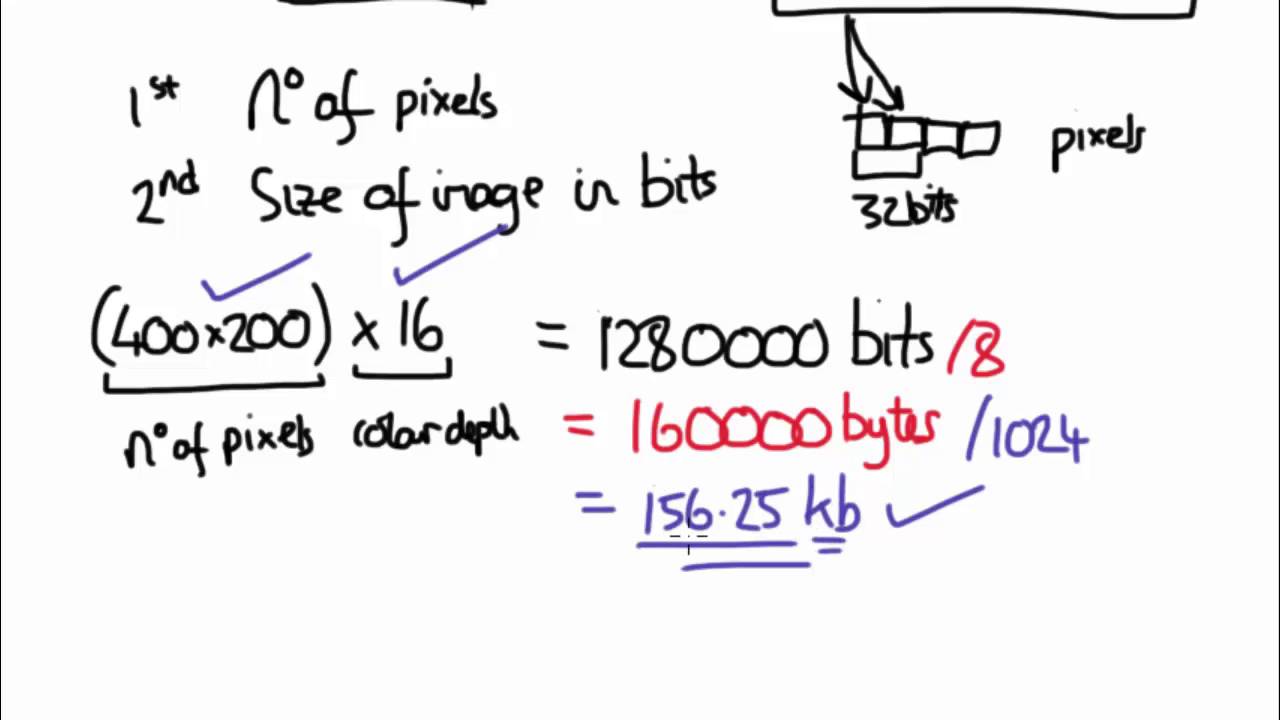 1st n° of pixels
2nd Size of image in bits
pixels
32bits
(400x200) x 16 = 1280000 bits /8
n° of pixels colour depth = 160000 bytes /1024
= 156.25 kb